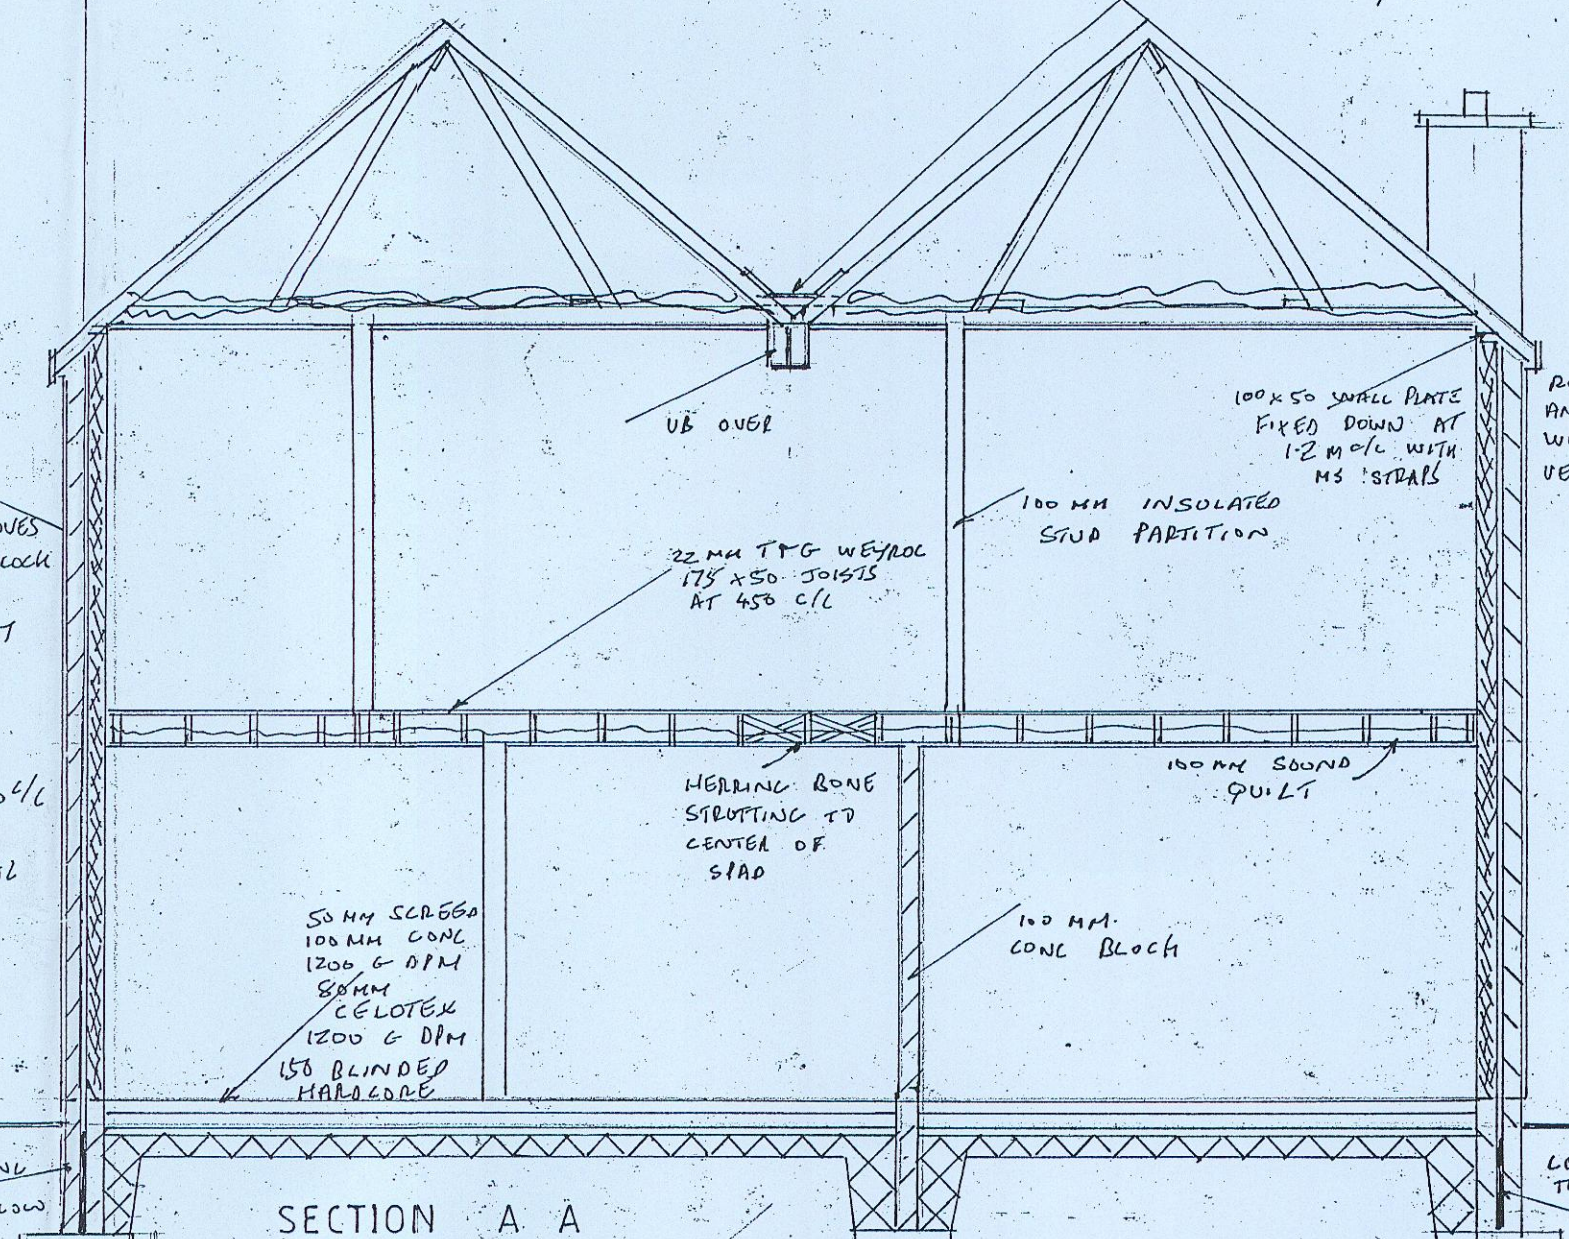 UB OVER
100 x 50 WALL PLATE
FIXED DOWN AT
1.2 M C/L WITH
MS STRAPS
100 MM INSULATED
STUD PARTITION
22 MM T+G WEYROC
175 x 50 JOISTS
AT 450 C/L
HERRING BONE
STRUTTING TO
CENTER OF
SPAD
100 MM SOUND
QUILT
50 MM SCREED
100 MM CONC
1200 G DPM
80MM
CELOTEX
1200 G DPM
150 BLINDED
HARDCORE
100 MM.
CONC BLOCK
SECTION A A